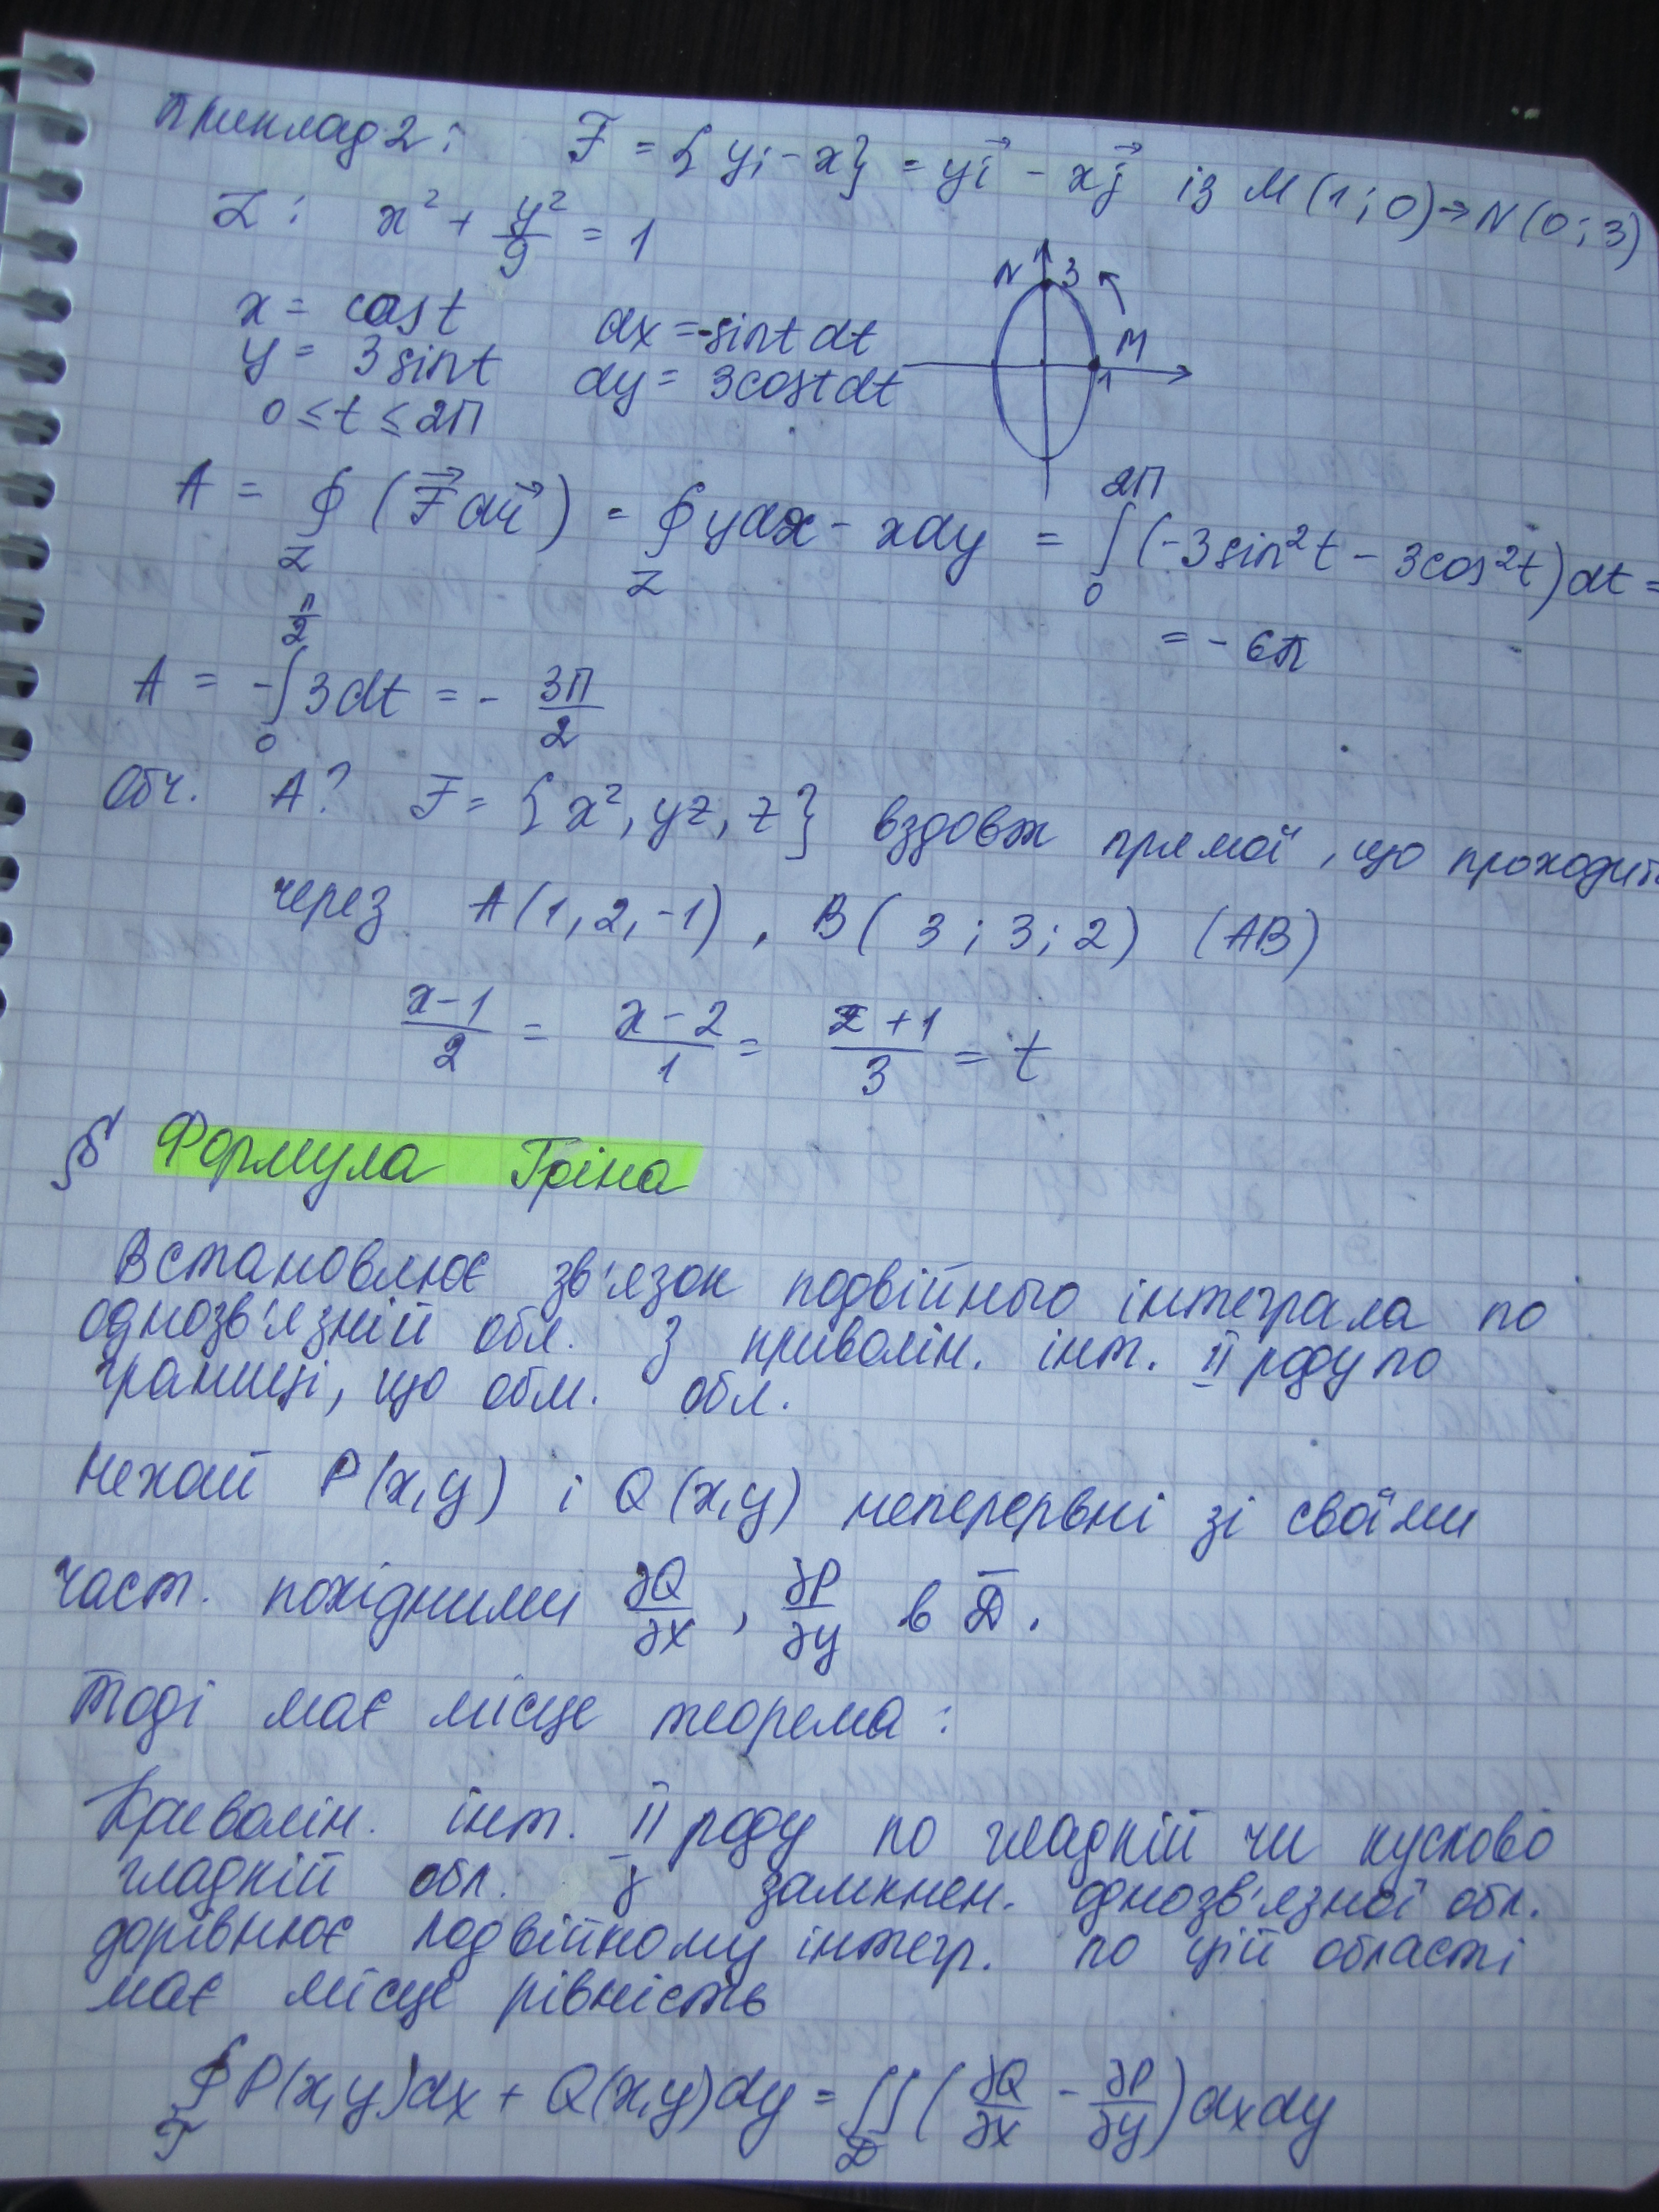 Приклад 2: F = {y; -x} = yi⃗ - xj⃗ із M(1;0)→N(0;3)
L: x² + y²/9 = 1
N 3
x = cost dx = -sint dt
M
y = 3sint dy = 3cost dt
1
0 ≤ t ≤ 2π
A = ∮_L (F⃗ dr⃗) = ∮_L ydx - xdy = ∫₀^{2π} (-3sin²t - 3cos²t)dt =
= -6π
A = -∫₀^{π/2} 3dt = - 3π/2
Обч. A? F = {x², yz, z} вздовж прямої, що проходить
через A(1,2,-1), B(3;3;2) (AB)
(x-1)/2 = (x-2)/1 = (z+1)/3 = t
§ Формула Гріна
Встановлює зв'язок подвійного інтеграла по
однозв'язній обл. з криволін. інт. II роду по
границі, що обм. обл.
Нехай P(x,y) і Q(x,y) неперервні зі своїми
част. похідними ∂Q/∂x, ∂P/∂y в D̄.
Тоді має місце теорема:
Криволін. інт. II роду по гладкій чи кусково
гладкій обл. γ замкнен. однозв'язної обл.
дорівнює подвійному інтегр. по цій області
має місце рівність
∮_Γ P(x,y)dx + Q(x,y)dy = ∬_D (∂Q/∂x - ∂P/∂y)dxdy